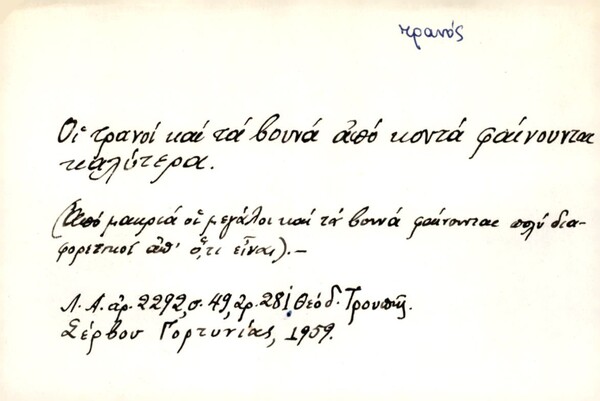 τρανός
Οἱ τρανοί καί τά βουνά ἀπό κοντά φαίνουνται
καλύτερα.
(Ἀπό μακριά οἱ μεγάλοι καί τά βουνά φαίνονται πολύ δια-
φορετικοί ἀπ' ὅ,τι εἶναι).—
Λ.Α. ἀρ. 2292, σ. 49, ἀρ. 281, Θεόδ. Τρουπῆς.
Σέρβου Γορτυνίας, 1959.